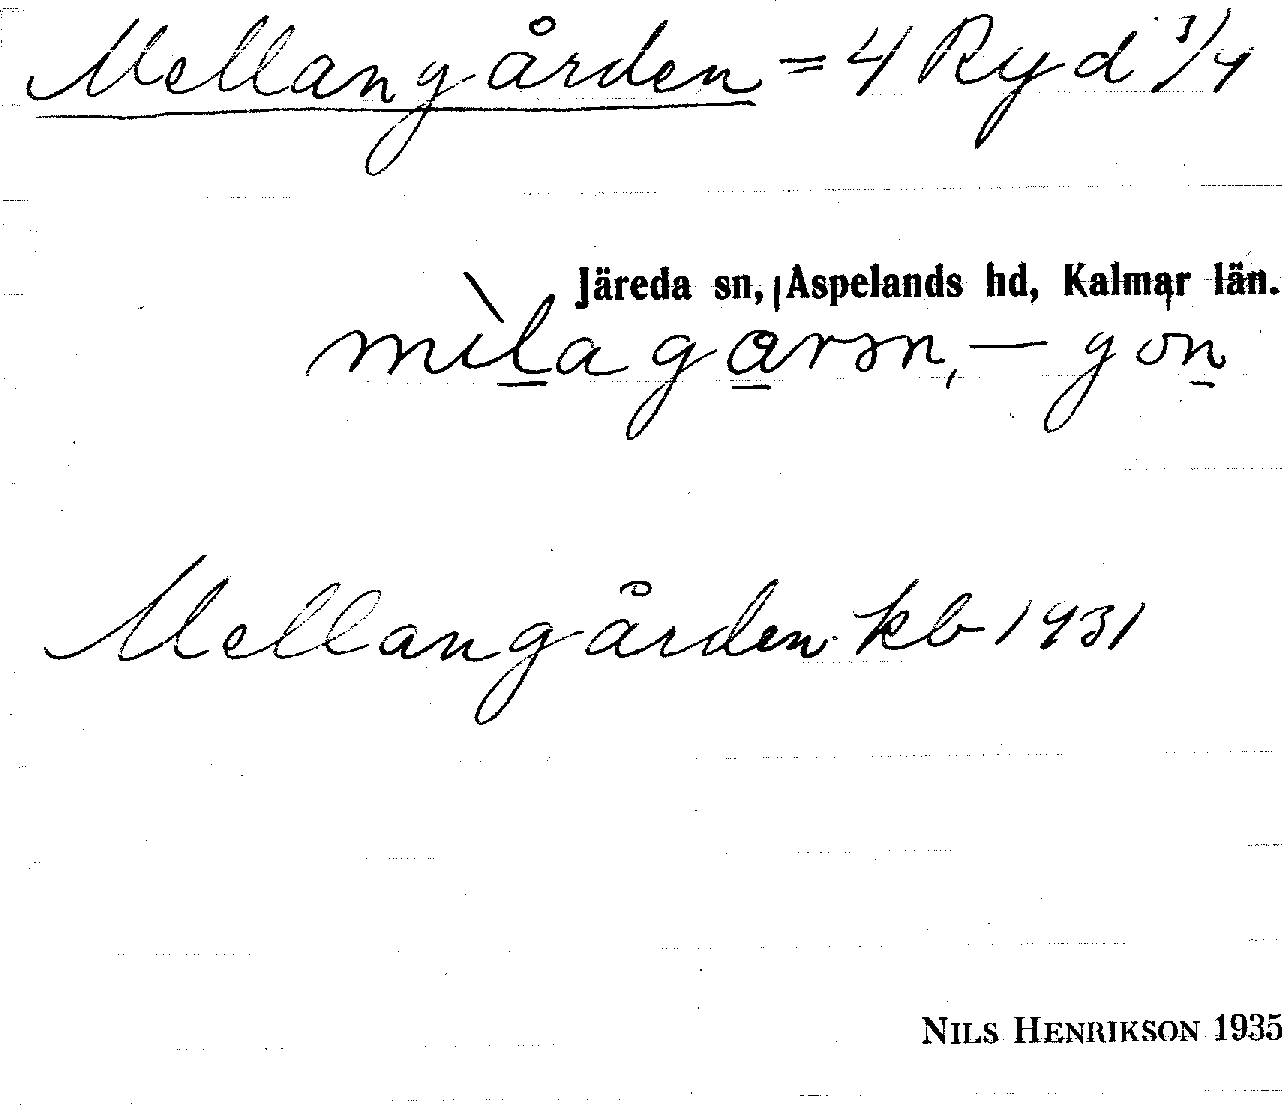 Mellangården = 4 Ryd 3/4
Järeda sn, Aspelands hd, Kalmar län.
Mellangården kb 1931
NILS HENRIKSON 1935